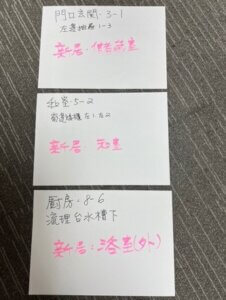 門口玄関·3-1
左邊抽屜1-3
新居·供若室
和室·5-2
窗邊矮櫃左1.右2
新居·和室
廚房·8-6
流理台水槽下
新居:浴室(外)